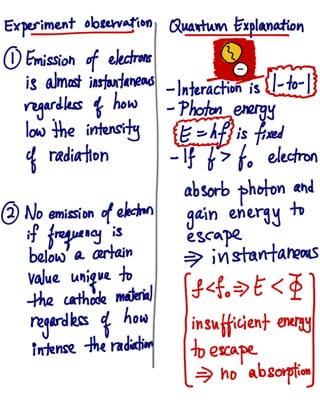 Experiment observation
① Emission of electrons
is almost instantaneous
regardless of how
low the intensity
of radiation
② No emission of electron
if frequency is
below a certain
value unique to
the cathode material
regardless of how
intense the radiation
Quantum Explanation
- Interaction is 1-to-1
- Photon energy
E = hf is fixed
- If f > f₀ electron
absorb photon and
gain energy to
escape
⇒ instantaneous
f < f₀ ⇒ E < Φ
insufficient energy
to escape
⇒ no absorption